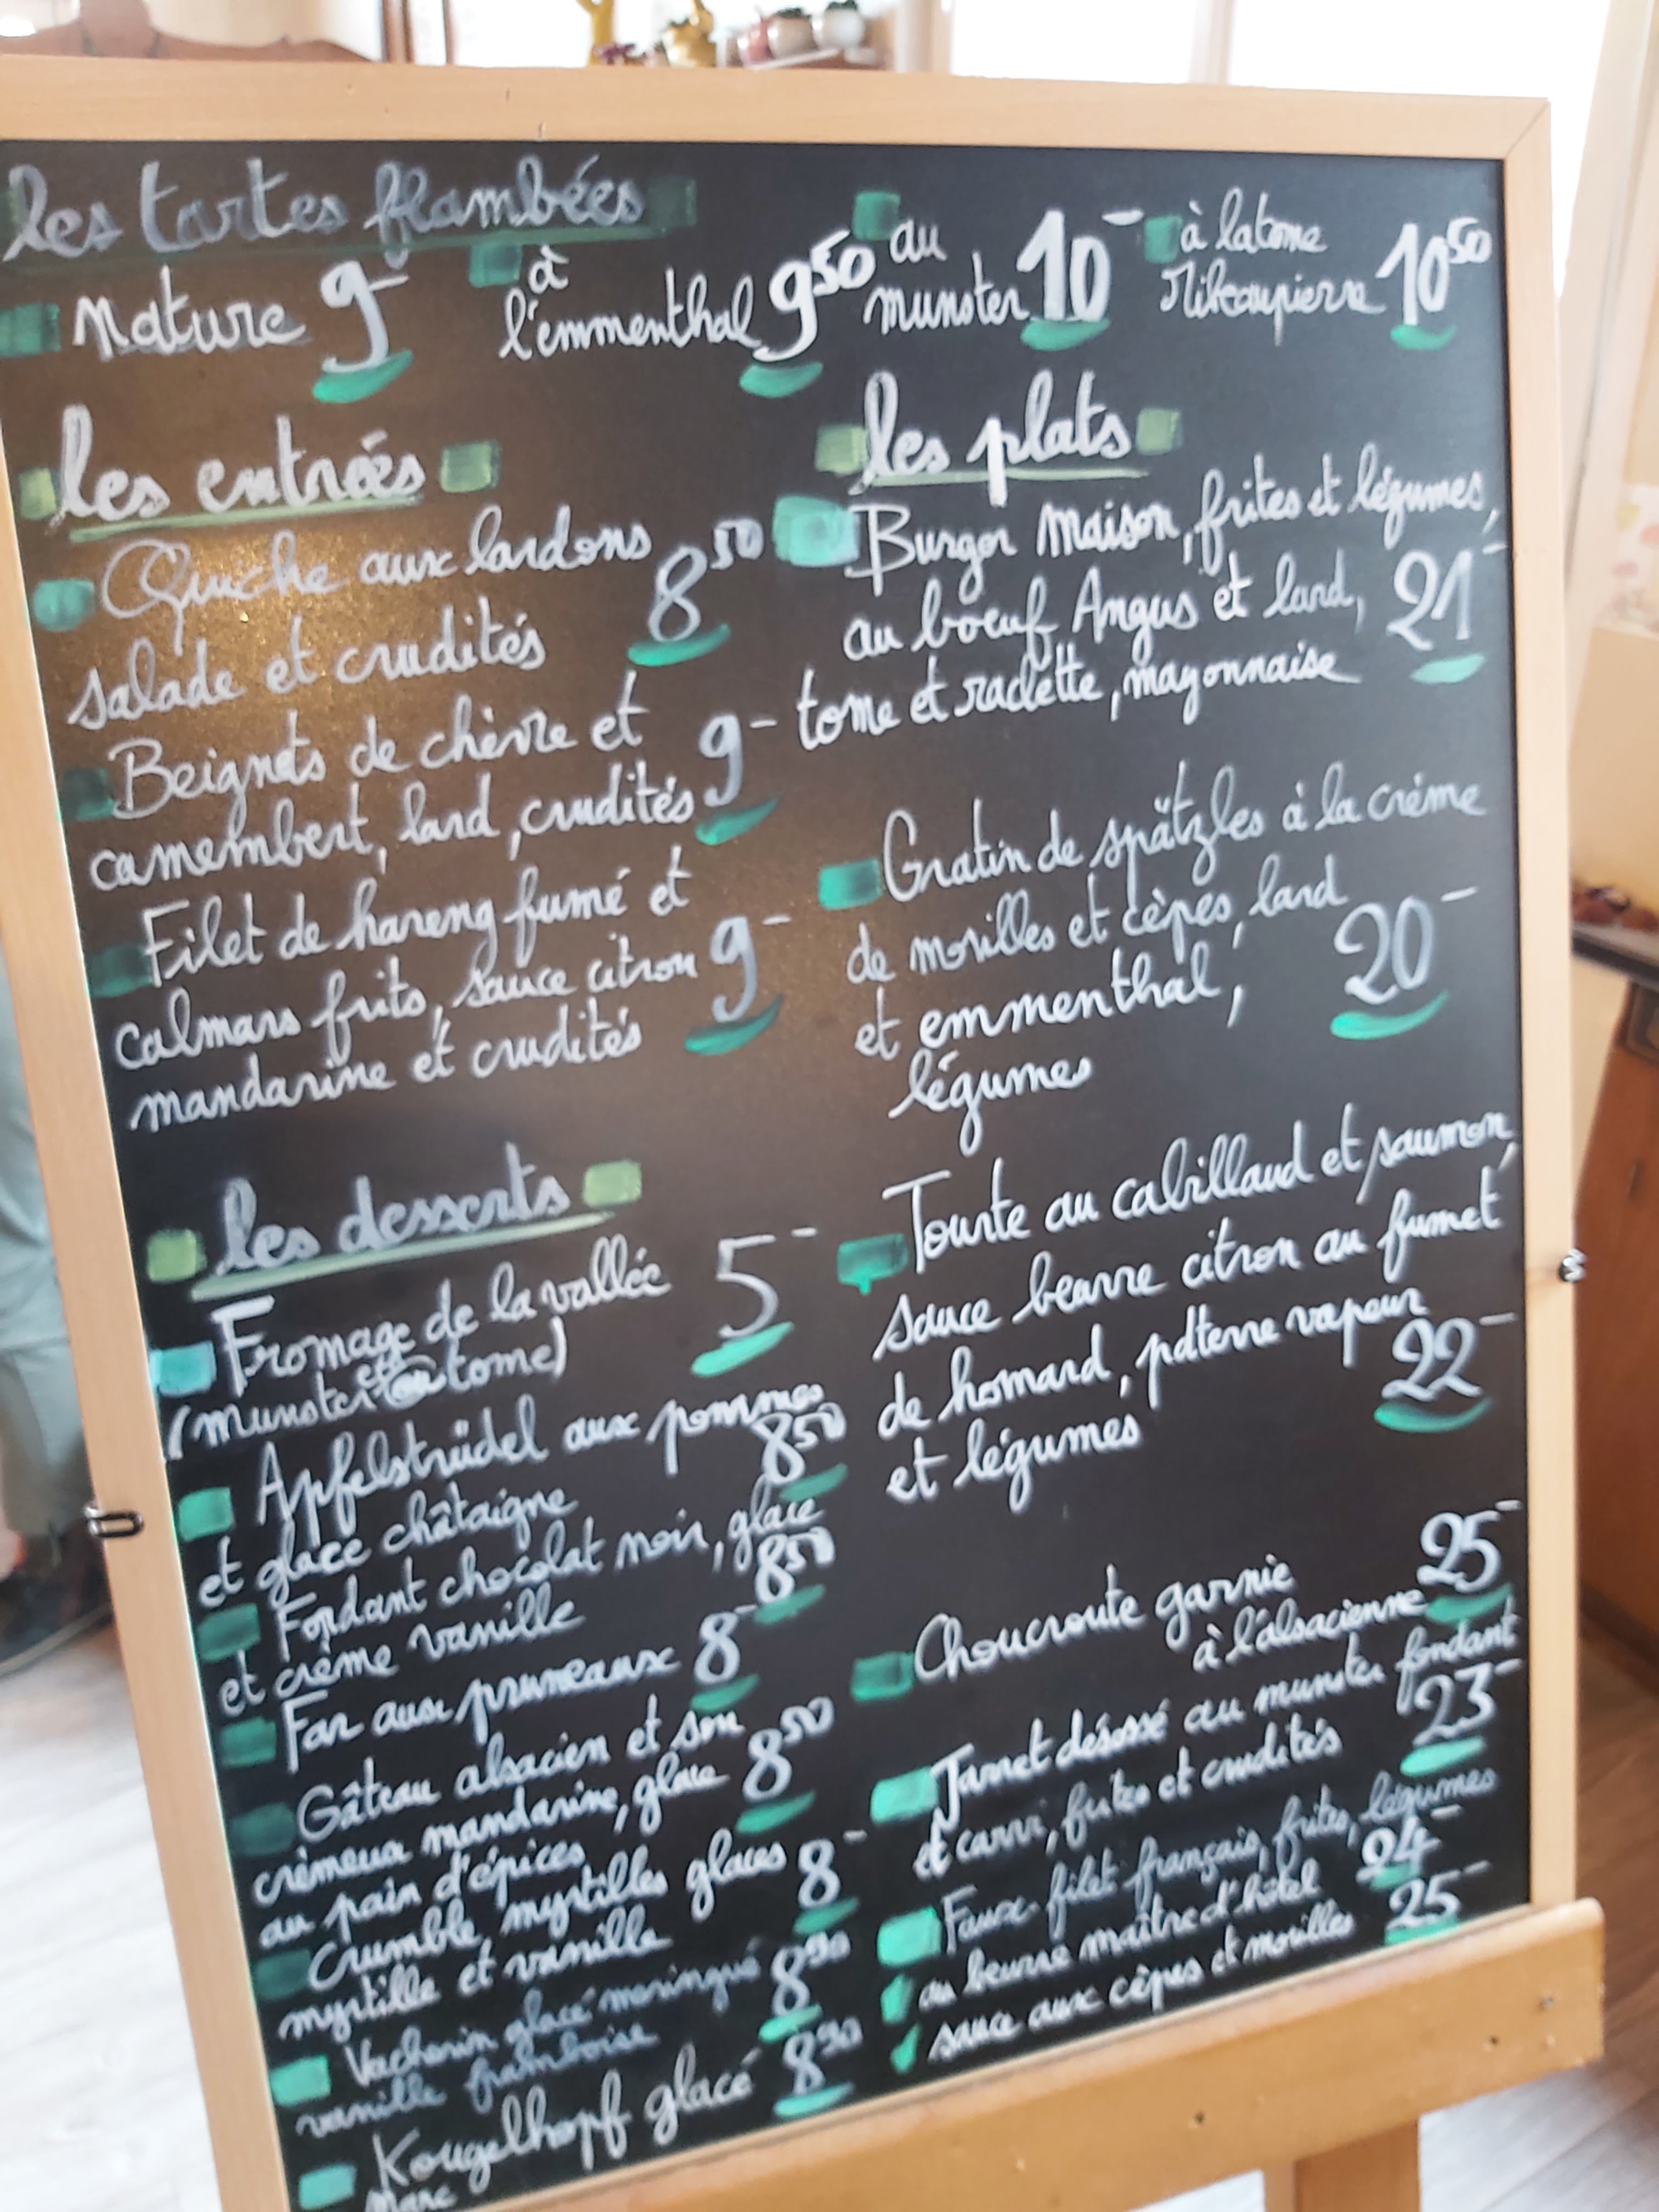 les tartes flambées
nature 9-
à l'emmenthal 9,50
au munster 10-
à la tome Ribeaupierre 10,50
les entrées
Quiche aux lardons
salade et crudités 8,50
Beignets de chèvre et
camembert, lard, crudités 9-
Filet de hareng fumé et
calmars frits, sauce citron 9-
mandarine et crudités
les desserts
Fromage de la vallée 5-
(munster et tome)
Apfelstrüdel aux pommes
et glace châtaigne 8,50
Fondant chocolat noir, glace
et crème vanille 8,50
Far aux pruneaux 8-
Gâteau alsacien et son
crémeux mandarine, glace 8,50
au pain d'épices
Crumble, myrtilles glaces
myrtille et vanille 8-
Vacherin glacé meringué 8,90
vanille framboise
Kougelhopf glacé 8,90
marc
les plats
Burger maison, frites et légumes,
au boeuf Angus et lard, 21-
tome et raclette, mayonnaise
Gratin de spätzles à la crème
de morilles et cèpes, lard
et emmenthal, 20-
légumes
Tourte au cabillaud et saumon,
sauce beurre citron au fumet
de homard, pdterre vapeur
et légumes 22-
Choucroute garnie 25-
à l'alsacienne
Jarret désossé au munster fondant
et carvi, frites et crudités 23-
Faux-filet français, frites, légumes
au beurre maître d'hôtel 24-
sauce aux cèpes et morilles 25-